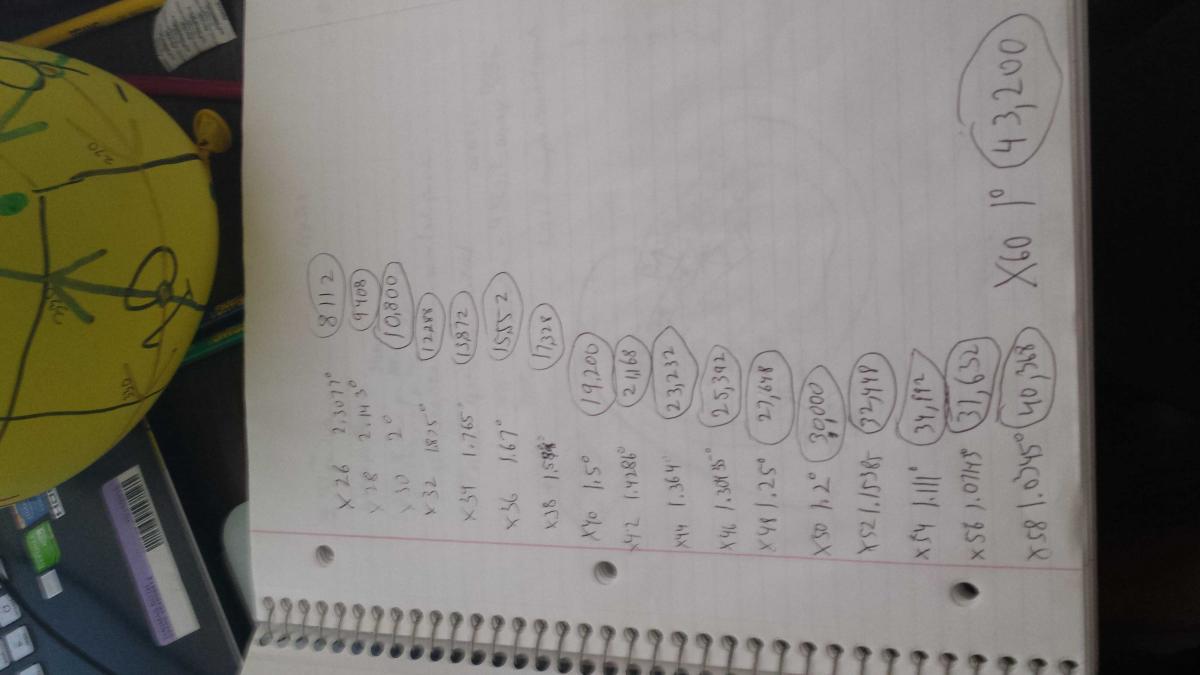 X26 2.307° 8112
X28 2.143° 9408
X30 2° 10,800
X32 1.875° 12288
X34 1.765° 13,872
X36 1.67° 15,552
X38 17,328
X40 1.5° 19,200
X42 1.4286° 21,168
X44 1.364° 23,232
X46 25,392
X48 1.25° 27,648
X50 1.2° 30,000
X52 1.1585 32,448
X54 1.111° 34,992
X56 1.0714° 31,632
X58 1.0345° 40,368
X60 1° 43,200
270
330